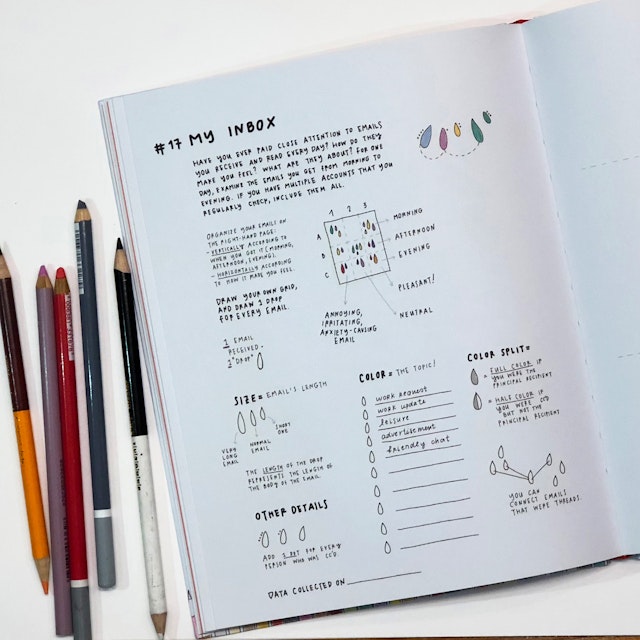 #17 MY INBOX
HAVE YOU EVER PAID CLOSE ATTENTION TO EMAILS
YOU RECEIVE AND READ EVERY DAY? HOW DO THEY
MAKE YOU FEEL? WHAT ARE THEY ABOUT? FOR ONE
DAY, EXAMINE THE EMAILS YOU GET FROM MORNING TO
EVENING. IF YOU HAVE MULTIPLE ACCOUNTS THAT YOU
REGULARLY CHECK, INCLUDE THEM ALL.
ORGANIZE YOUR EMAILS ON
THE RIGHT-HAND PAGE:
- VERTICALLY ACCORDING TO
WHEN YOU GOT IT (MORNING,
AFTERNOON, EVENING).
- HORIZONTALLY ACCORDING
TO HOW IT MADE YOU FEEL.
DRAW YOUR OWN GRID,
AND DRAW 1 DROP
FOR EVERY EMAIL.
1 EMAIL
RECEIVED =
1 "DROP"
1 2 3
A
B
C
MORNING
AFTERNOON
EVENING
PLEASANT!
NEUTRAL
ANNOYING,
IRRITATING,
ANXIETY-CAUSING
EMAIL
SIZE = EMAIL'S LENGTH
VERY
LONG
EMAIL
NORMAL
EMAIL
SHORT
ONE
THE LENGTH OF THE DROP
REPRESENTS THE LENGTH OF
THE BODY OF THE EMAIL.
OTHER DETAILS
ADD 1 DOT FOR EVERY
PERSON WHO WAS CC'D.
COLOR = THE TOPIC!
work request
work update
leisure
advertisement
friendly chat
COLOR SPLIT =
= FULL COLOR IF
YOU WERE THE
PRINCIPAL RECIPIENT
= HALF COLOR IF
YOU WERE CC'D
BUT NOT THE
PRINCIPAL RECIPIENT
YOU CAN
CONNECT EMAILS
THAT WERE THREADS.
DATA COLLECTED ON